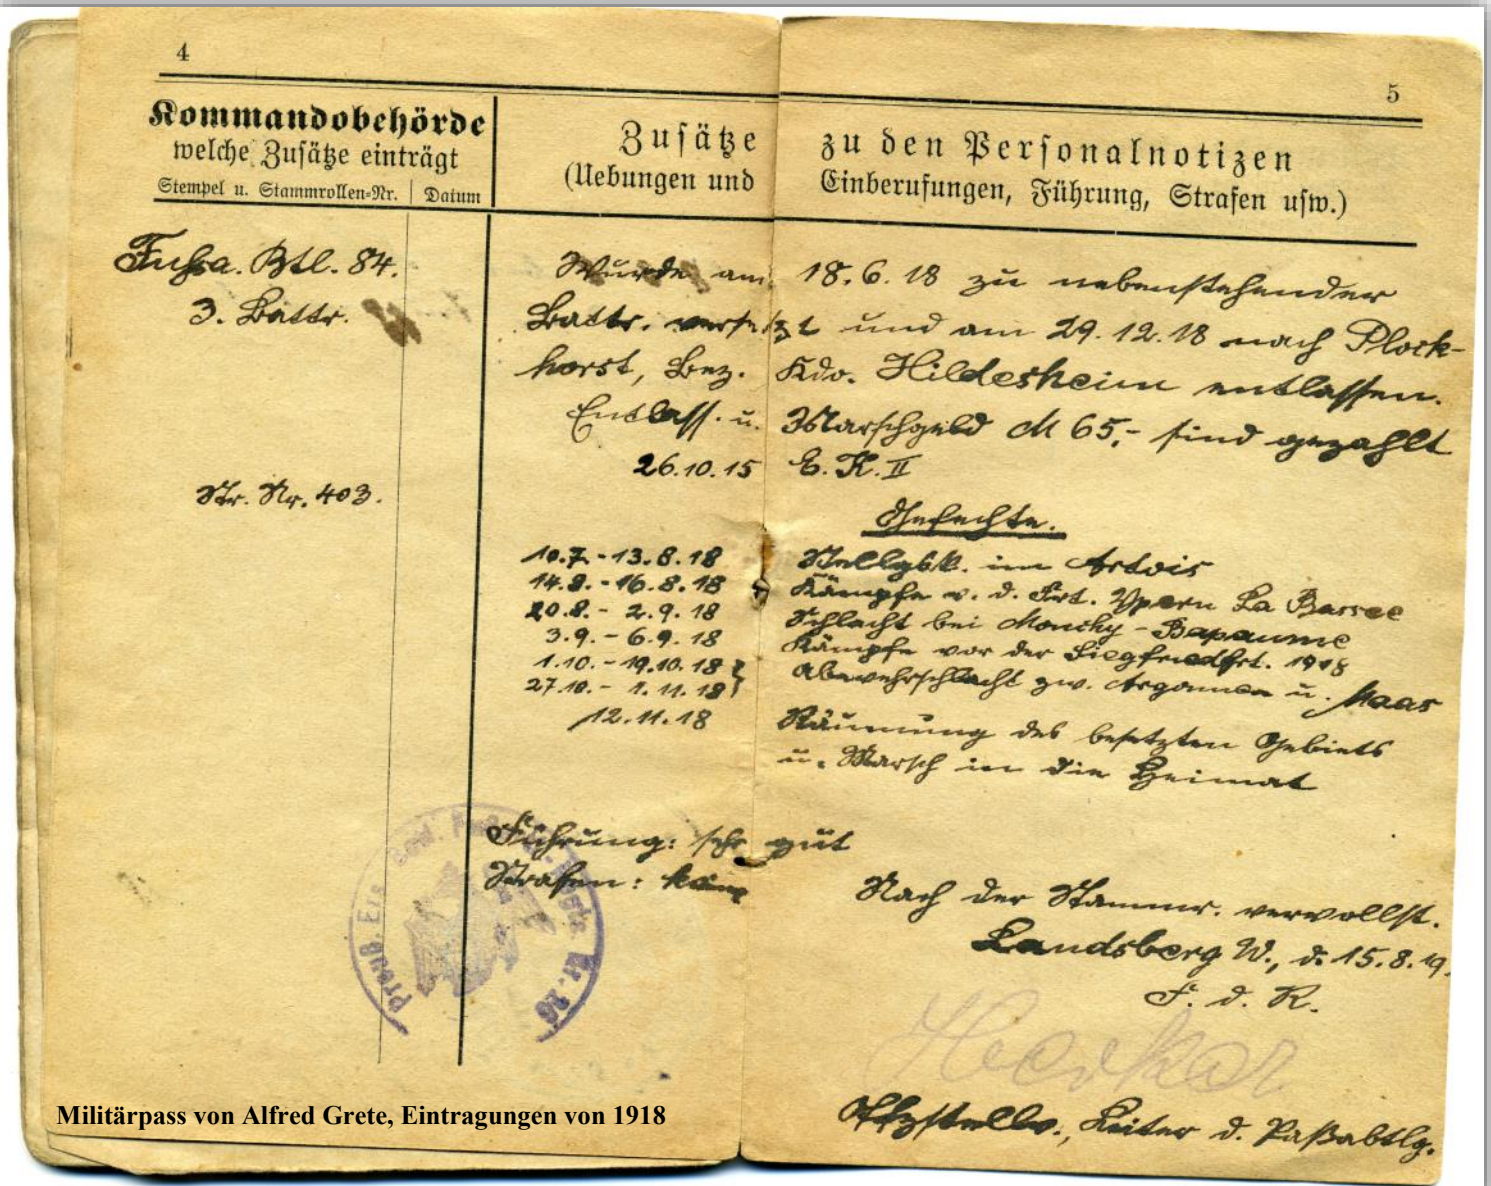 4
5
Kommandobehörde
welche Zusätze einträgt
Stempel u. Stammrollen-Nr. | Datum
Zusätze zu den Personalnotizen
(Uebungen und Einberufungen, Führung, Strafen usw.)
Fußa. Btl. 84.
3. Battr.
Wurde am 18.6.18 zu nebenstehender
Battr. versetzt und am 29.12.18 nach Plock-
horst, Bez. Kdo. Hildesheim entlassen.
Entlass. u. Marschgeld M 65,- sind gezahlt
26.10.15 E.K.II
Str. Nr. 403.
Gefechte.
10.7.-13.8.18 Stellgsk. im Artois
14.8.-16.8.18 Kämpfe v. d. Frt. Ypern La Bassee
20.8.- 2.9.18 Schlacht bei Monchy-Bapaume
3.9.-6.9.18 Kämpfe vor der Siegfriedfrt. 1918
1.10.-19.10.18 } Abwehrschlacht zw. Argonnen u. Maas
27.10.- 1.11.18 }
12.11.18 Räumung des besetzten Gebiets
u. Marsch in die Heimat
Führung: sehr gut
Strafen: keine
Preuß. Nr. 26
Nach der Stammr. vervollst.
Landsberg W., d. 15.8.19.
F. d. R.
Offzstellv., Leiter d. Paßabtlg.
Militärpass von Alfred Grete, Eintragungen von 1918